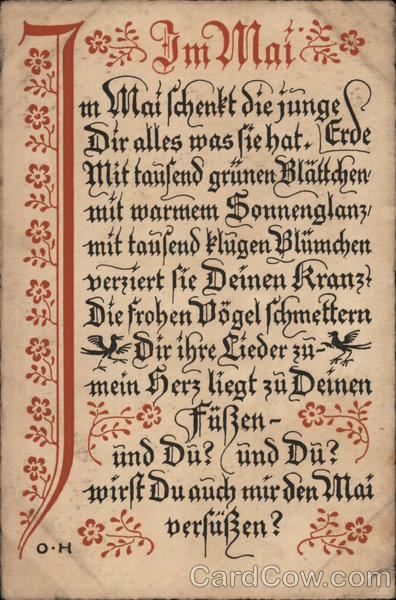 Im Mai
Im Mai schenkt die junge
Dir alles was sie hat. Erde
Mit tausend grünen Blättchen,
mit warmem Sonnenglanz,
mit tausend klugen Blümchen
verziert sie Deinen Kranz.
Die frohen Vögel schmettern
Dir ihre Lieder zu-
mein Herz liegt zu Deinen
Füßen-
und Du? und Du?
wirst Du auch mir den Mai
versüßen?
O·H
CardCow.com